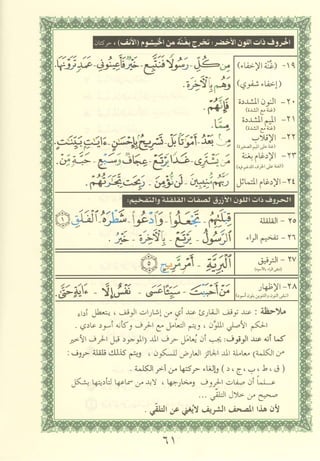 الحروف ذات اللون الأخضر : تخرج بغنّة من الخيشوم (الأنف) ، حركتان
١٩- (غنّة الإخفاء) مِن كُلِّ . رَسُولًا فَنَتَّبِعَ . خَيْرٌ فَأَعِينُونِي . عَمَدٍ تَرَوْنَهَا .
(إخفاء شفوي) وَهُم بِالْآخِرَةِ .
٢٠- النون المشددة فَإِنَّهُمْ .
٢١- الميم المشددة مِمَّا .
٢٢- الإقلاب مِنۢ بَعْدُ . أَمْوَاتًا بَل . تَسْرِيحٌ بِإِحْسَانٍ . ءَايَاتٍ بَيِّنَاتٍ .
٢٣- الإدغام بغنة مَن يَشْتَرِي . غَدًا يَرْتَعْ . عِجَافٌ وَسَبْعِ . حَبَّةٍ مِّنْ .
٢٤- الإدغام المتماثل رَبِّهِم مُّنِيبِينَ . لَن نُّؤْمِنَ . رَبِحَت تِّجَارَتُهُمْ .
الحروف ذات اللون الأزرق لصفات القلقلة والتفخيم :
٢٥- القلقلة قَبْلِهِمْ . تَجْعَلُوا . وَادْعُوا . شَطْرَهُ . الْفَلَقِ
٢٦- تفخيم الراء الرَّسُولُ . يَرْتَعْ . بِالْآخِرَةِ . خَيْرٌ .
٢٧- الترقيق الْبَرِيَّةِ . أَمْرٍ مَّرِيجٍ ٥
٢٨- الإظهار مَنْ أَحْبَبْتَ . سَمِيعًا عَسَى . نَفْسٌ إِلَّا . ءَايَةٍ حَتَّى
ملاحظة : عند توقف القارئ عند أي من إشارات الوقف ، يتعطل أداء
الحكم الأصلي الملوَّن ، ويتم التعامل مع الحرف وكأنه أسود عادي .
كما أنه عند الوقوف: يجب أن يُعامل حرف المد (الموجود قبل الحرف الأخير
من الكلمة) معاملة المد الجائز العارض للسكون ، ويتم كذلك قلقلة حروف :
( ق ، ط ، ب ، ج ، د ) وإلغاء حركتها من آخر الكلمة .
علماً أن صفات الحروف ومخارجها ، لابد من سماعها لتأديتها بشكل
صحيح من خلال التلقي ...
لأن هذا المصحف الشريف لا يُغني عن التلقي .
٦١